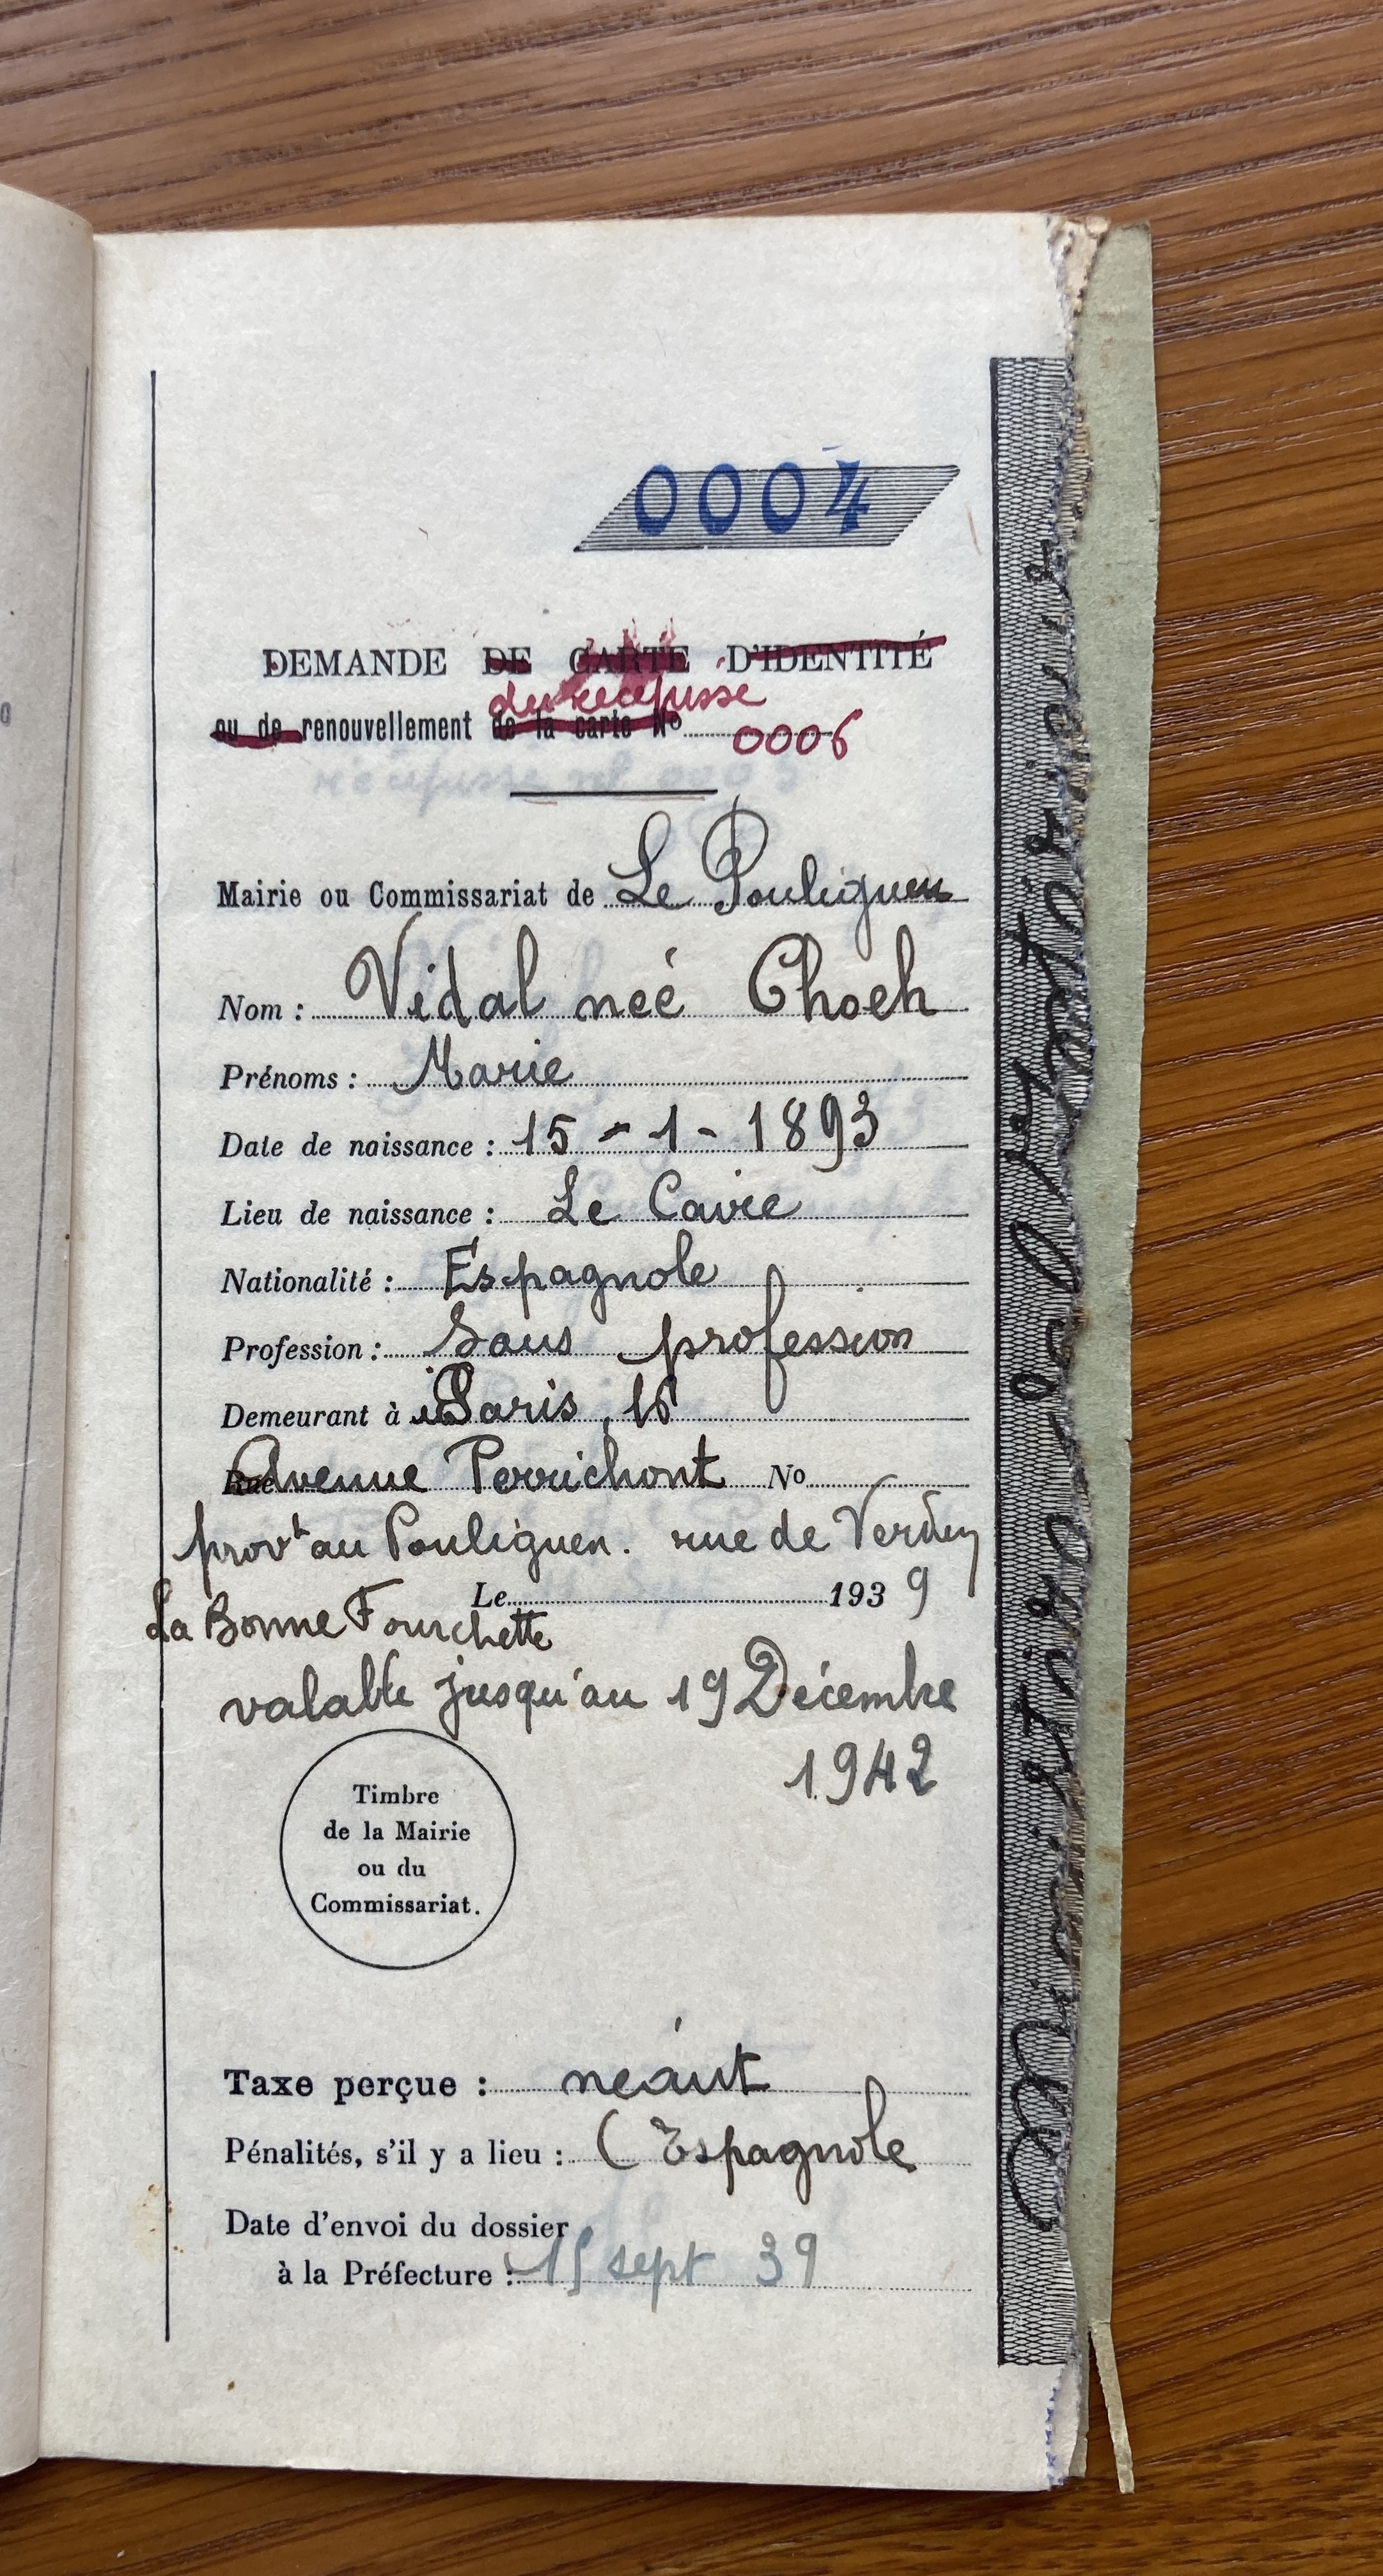 0004
DEMANDE DE CARTE D'IDENTITÉ
du récépissé
ou de renouvellement de la carte No 0006
Mairie ou Commissariat de Le Pouliguen
Nom : Vidal neé Choeh
Prénoms : Marie
Date de naissance : 15 - 1 - 1893
Lieu de naissance : Le Caire
Nationalité : Espagnole
Profession : Sans profession
Demeurant à Paris, 16
Avenue Perrichont No
provt au Pouliguen. rue de Verdun
Le 1939
La Bonne Fourchette
valable jusqu'au 19 Décembre
1942
Timbre
de la Mairie
ou du
Commissariat.
Taxe perçue : néant
Pénalités, s'il y a lieu : (Espagnole
Date d'envoi du dossier
à la Préfecture : 15 sept 39